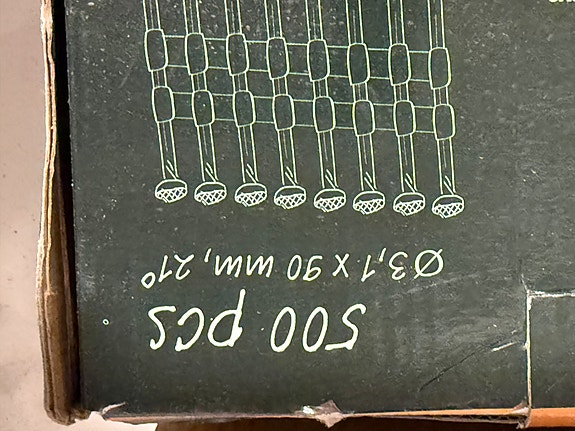 500 pcs
Ø3,1 x 90 mm, 21°